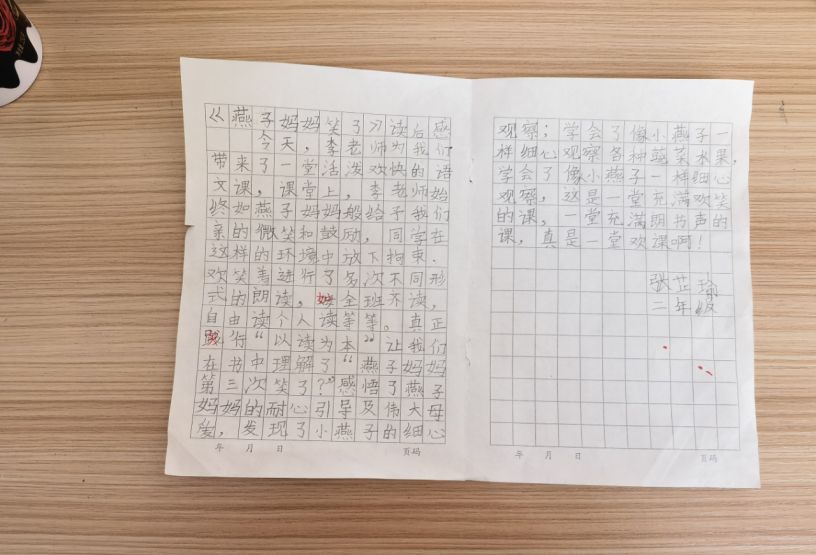 《燕子妈妈笑了》读后感
今天，李老师为我们
带来了一堂活泼欢快的语
文课，课堂上，李老师始
终如燕子妈妈般给予我们
亲的微笑和鼓励，同学在
这样的环境中放下拘束．
欢笑着进行了多次不同形
式的朗读，全班齐读，
自由读个人读等等。真正
践行“以读为本”让我们
在书中理解了“燕子妈妈
第三次笑了？”感悟了燕子
妈妈的耐心引导及伟大母
爱，发现了小燕子的细心
年 月 日 页码
观察；学会了像小燕子一
样细心观察各种蔬菜水果，
学会了像小燕子一样细心
观察，这是一堂充满欢笑
的课，一堂充满朗书声的
课，真是一堂欢课啊！
张芷瑜
二年级
年 月 日 页码